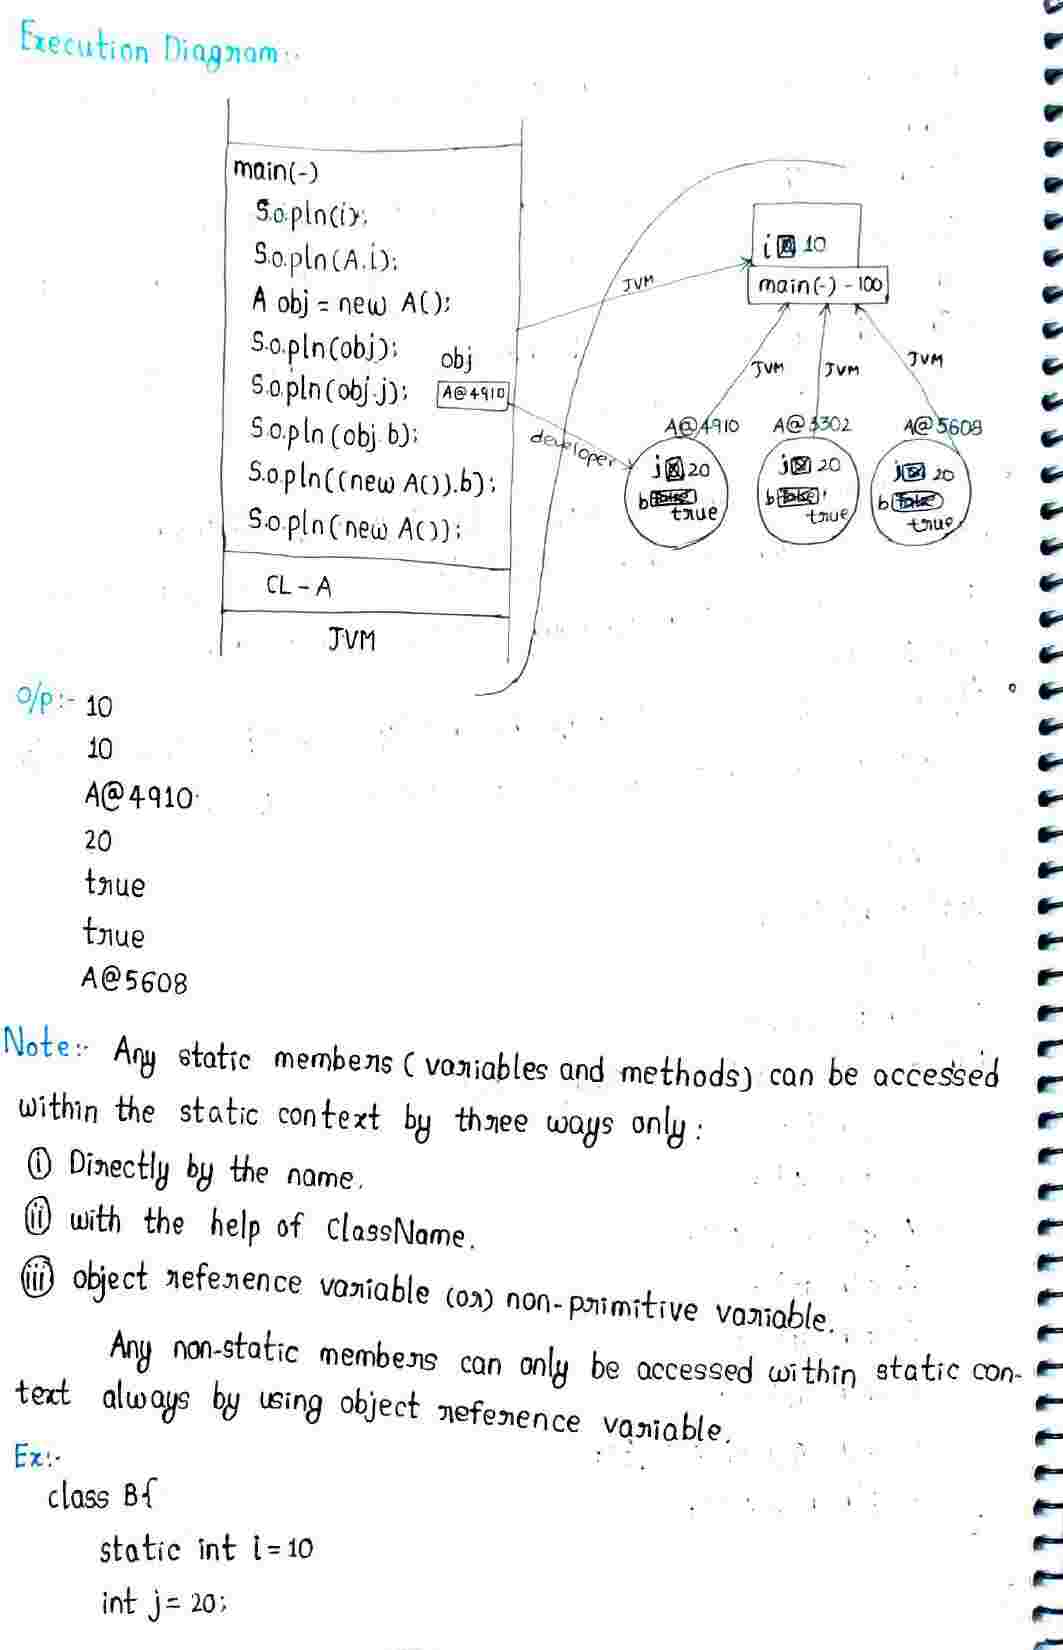 Execution Diagram:-
main(-)
S.o.pln(i);
S.o.pln(A.i);
A obj = new A();
S.o.pln(obj);
S.o.pln(obj.j);
S.o.pln(obj.b);
S.o.pln((new A()).b);
S.o.pln(new A());
CL - A
JVM
obj
A@4910
developer
JVM
i 10
main(-) - 100
JVM
JVM
JVM
A@4910
j 20
b false
true
A@3302
j 20
b false
true
A@5608
j 20
b false
true
O/P:- 10
10
A@4910
20
true
true
A@5608
Note:- Any static members (variables and methods) can be accessed
within the static context by three ways only:
(i) Directly by the name.
(ii) with the help of ClassName.
(iii) object reference variable (or) non-primitive variable.
Any non-static members can only be accessed within static con-
text always by using object reference variable.
Ex:-
class B{
static int i=10
int j= 20;